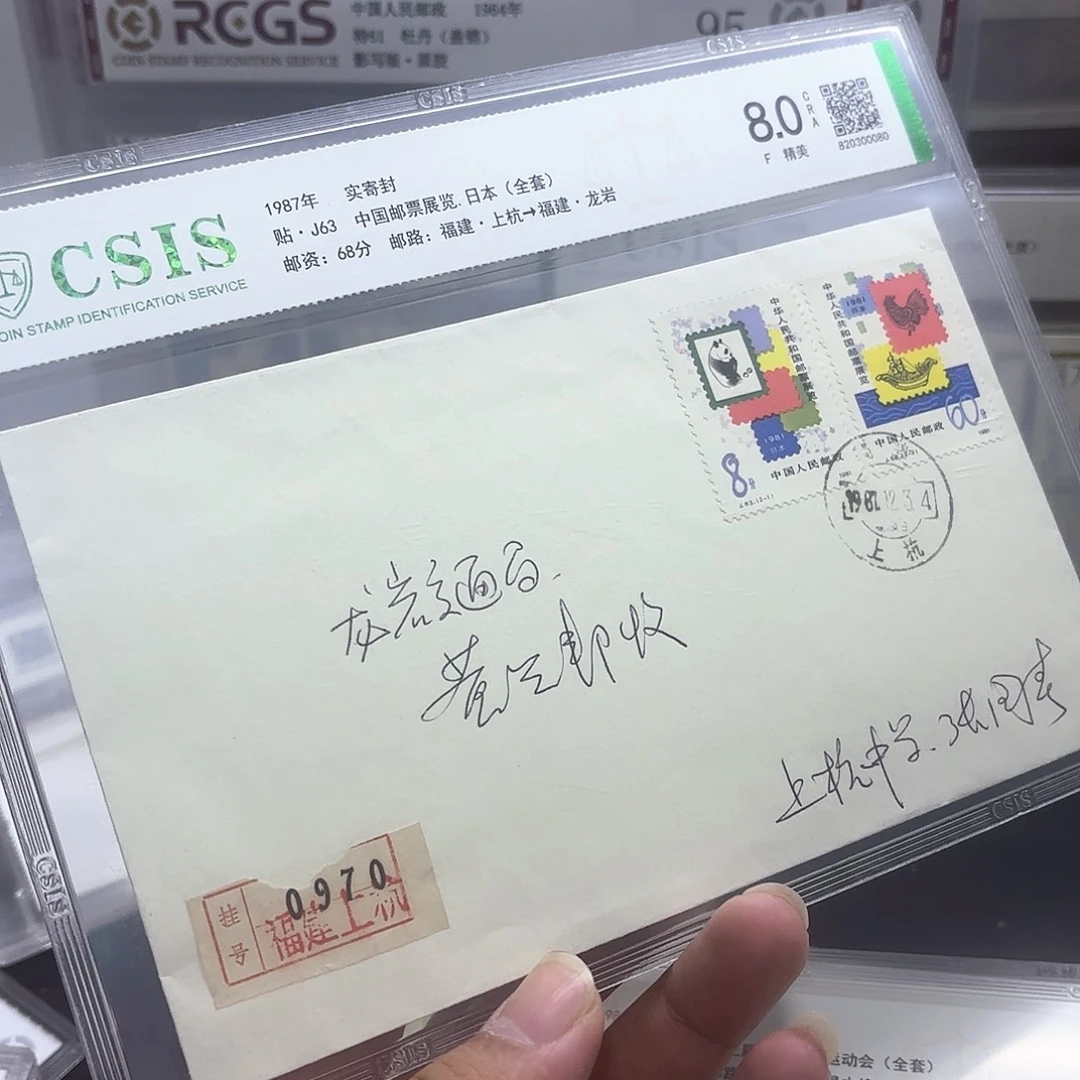 RCGS
中国人民邮政 1964年
特61 牡丹（盖销）
COIN STAMP RECOGNITION SERVICE
影写版·票胶
95
CSIS
CSIS
CSIS
8.0
CRA
F 精美
820300080
CSIS
COIN STAMP IDENTIFICATION SERVICE
1987年 实寄封
贴·J63 中国邮票展览.日本（全套）
邮资：68分 邮路：福建·上杭→福建·龙岩
中华人民共和国邮票展览
1981
日本
8分
中国人民邮政
J.63.(2-1)
中华人民共和国邮票展览
1981
日本
60分
中国人民邮政
1981
1987.12.3.4
上杭
龙岩交通局
黄 邮收
上杭中学.张国清
挂号
0970
福建上杭
CSIS
CSIS
CSIS
运动会（全套）